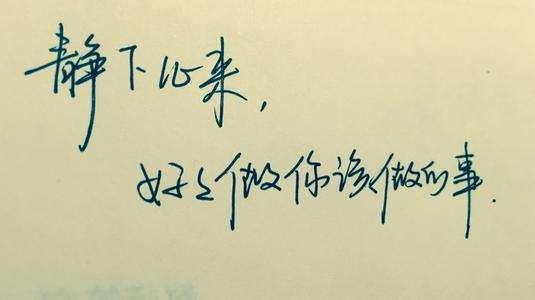 静下心来，
好好做你该做的事．